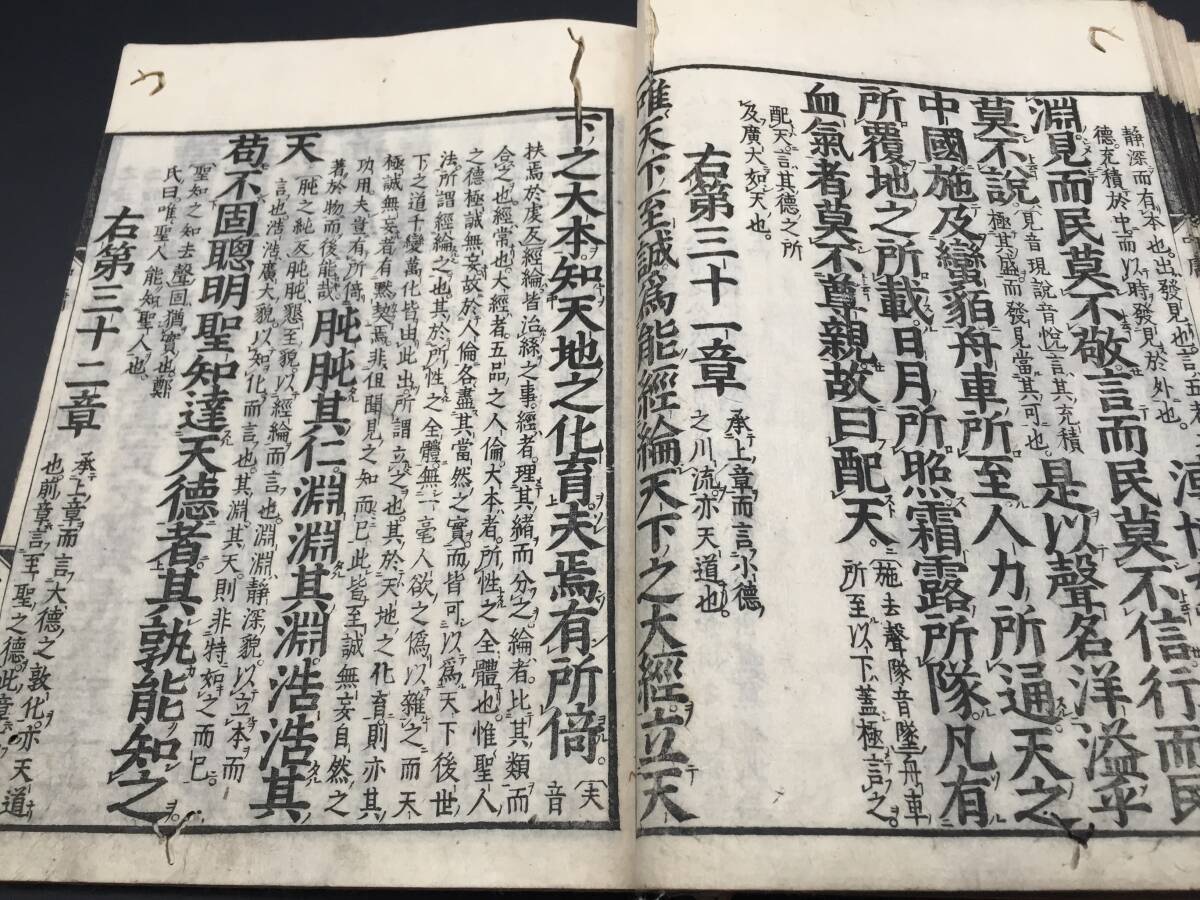 靜深而有本也。出發見也。言五者
德充積於中而以時發見於外也。
淵。見而民莫不敬。言而民莫不信。行而民
莫不說。
見音現。說音悅。言其充積
極其盛。而發見當其可也。
是以聲名洋溢乎
中國施及蠻貊。舟車所至。人力所通。天之
所覆。地之所載。日月所照。霜露所隊。凡有
血氣者。莫不尊親。故曰配天。
施去聲。隊音墜。舟車
所至以下。蓋極言之。
配天。言其德之所
及廣大如天也。
右第三十一章
承上章而言小德
之川流。亦天道也。
唯天下至誠。爲能經綸天下之大經。立天
下之大本。知天地之化育。夫焉有所倚。
夫
音
扶。焉於虔反。經綸皆治絲之事。經者。理其緒而分之。綸者。比其類而
合之也。經常也。大經者。五品之人倫。大本者。所性之全體也。惟聖人
之德。極誠無妄。故於人倫各盡其當然之實。而皆可以爲天下後世
法。所謂經綸之也。其於所性之全體。無一毫人欲之僞以雜之。而天
下之道千變萬化。皆由此出。所謂立之也。其於天地之化育。則亦其
極誠無妄者有默契焉。非但聞見之知而已。此皆至誠無妄自然之
功用。夫豈有所倚
著於物而後能哉
肫肫其仁。淵淵其淵。浩浩其
天
肫之純反。肫肫懇至貌。以經綸而言也。淵淵靜深貌。以立本而
言也。浩浩廣大貌。以知化而言也。其淵其天。則非特如之而已。
苟不固聰明聖知達天德者。其孰能知之。
聖知之知去聲。固猶實也。鄭
氏曰。唯聖人能知聖人也。
右第三十二章
承上章而言大德之敦化。亦天道
也。前章言至聖之德。此章